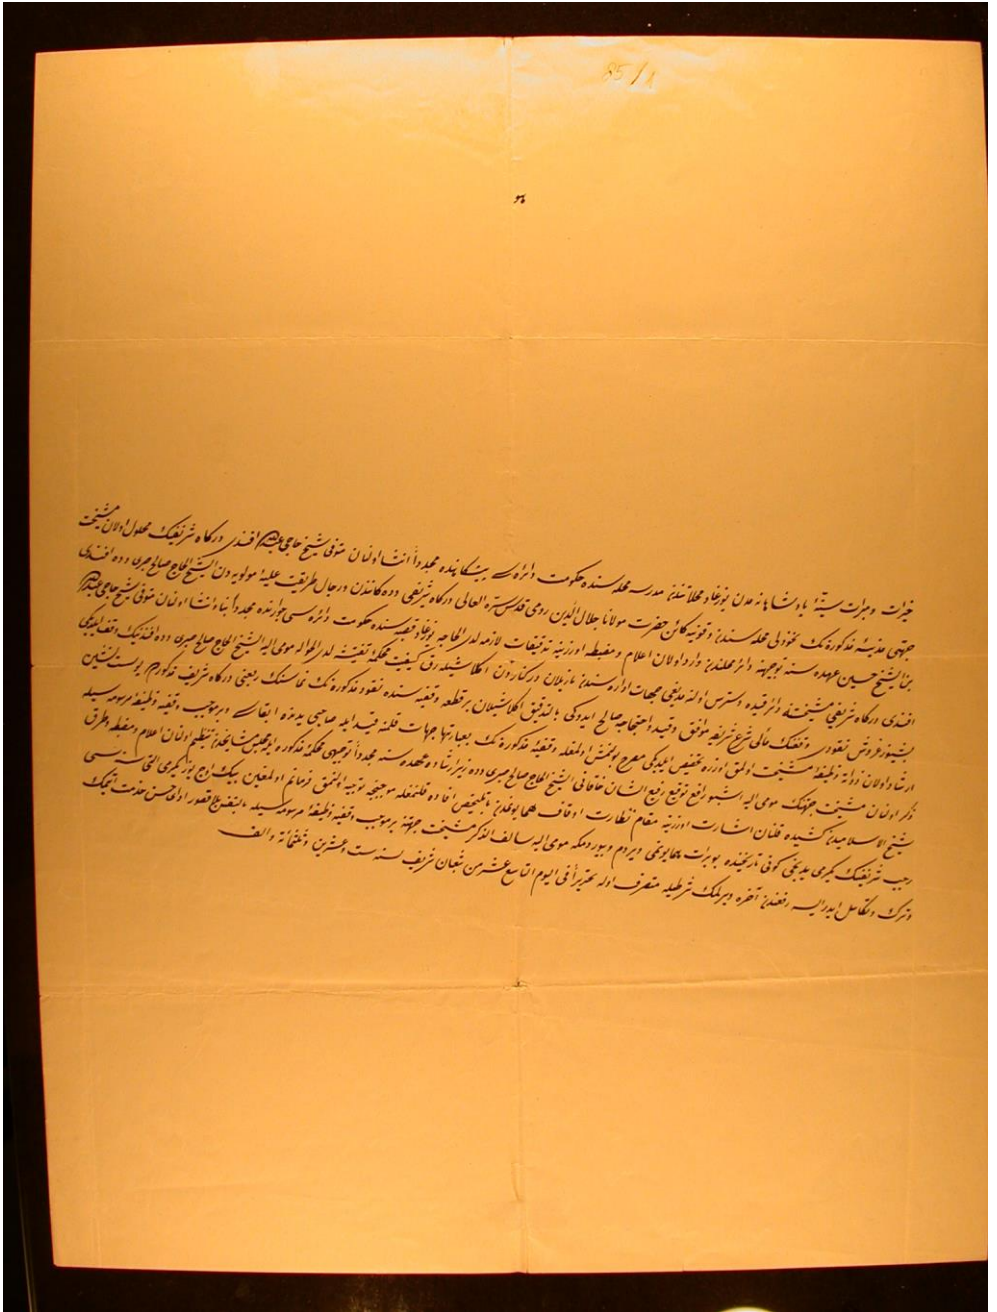 85/1
هو
خيرات و مبرات سنيۀ پادشاهانه مدن يوزغاد محلاتندن مدرسه محله سنده حكومت دائره سى پيشكاهنده مجدداً انشا اولنان متوفى شيخ حاجى افندى دركاه شريفنك محلول اولان مشيخت
جهتى مدينۀ مذكوره نك محله سندن وقونيه كائن حضرت مولانا جلال الدين رومى قدس سره العالى دركاه شريفى دده كانندن و رجال طريقت عليۀ مولويه دن الشيخ الحاج صالح صبرى دده افندى
بن الشيخ حسين عهده سنه توجيهنه دائر محلندن وارد اولان اعلام و مضبطه اوزرينه تدقيقات لازمه لدى الاجرا يوزغاد قصبه سنده حكومت دائره سى جوارنده مجدداً بناء و انشا اولنان متوفى شيخ حاجى
افندى دركاه شريفى مشيختنه دائر قيده دسترس اوله مديغى جهات اداره سندن يازيلان دركناردن اكلاشيلمه دن كيفيت محكمۀ تفتيشه لدى الحواله مومى اليه الشيخ الحاج صالح صبرى دده افندينك وقف ايلديكى
بشيوز غروش نقودى وقفنك مآلى شرع شريفه موافق وقيده و احتجاجه صالح ايدوكى بالتدقيق اكلاشيلان بر قطعه وقفيه سنده نقود مذكوره نك نماسنك ربعنى دركاه شريف مذكورده پوست نشين
ارشاد اولان ذواته وظيفۀ مشيخت اولمق اوزره تخصيص ايلديكى مصرح بولنمش اولمغله وقفيۀ مذكوره نك بعبارتها جهات قلمنه قيد ايله صاحبى يدينه ايقاسى و بر موجب وقفيه وظيفۀ مرسومه سيله
ذكر اولنان مشيخت جهتنك مومى اليه اشبو رافع توقيع رفيع الشان خاقانى الشيخ الحاج صالح صبرى دده زيد ارشاده عهده سنه مجدداً توجيهى محكمۀ مذكوره ايله مجلس مشايخدن تنظيم اولنان اعلام و مضبطه و طرف
شيخ الاسلاميدن كشيده قلنان اشارت اوزرينه مقام نظارت اوقاف همايونمدن بالتلخيص افاده قلنمغله موجبنجه توجيه اولنمق فرمانم اولمغين بيك اوچ يوز يكرمى التى سنه سى
رجب شريفنك يكرمى يدنجى كونى تاريخنده بو برات همايونمى ويردم و بيوردمكه مومى اليه سالف الذكر مشيخت جهتنه بر موجب وقفيه وظيفۀ مرسومه سيله بالنفس بلا قصور اداى حسن خدمت ايتمك
و ترك و تكاسل ايدر ايسه رفعندن آخره ويرلمك شرطيله متصرف اوله تحريراً فى اليوم التاسع عشر من شعبان شريف لسنه ست و عشرين و ثلثمائه و الف